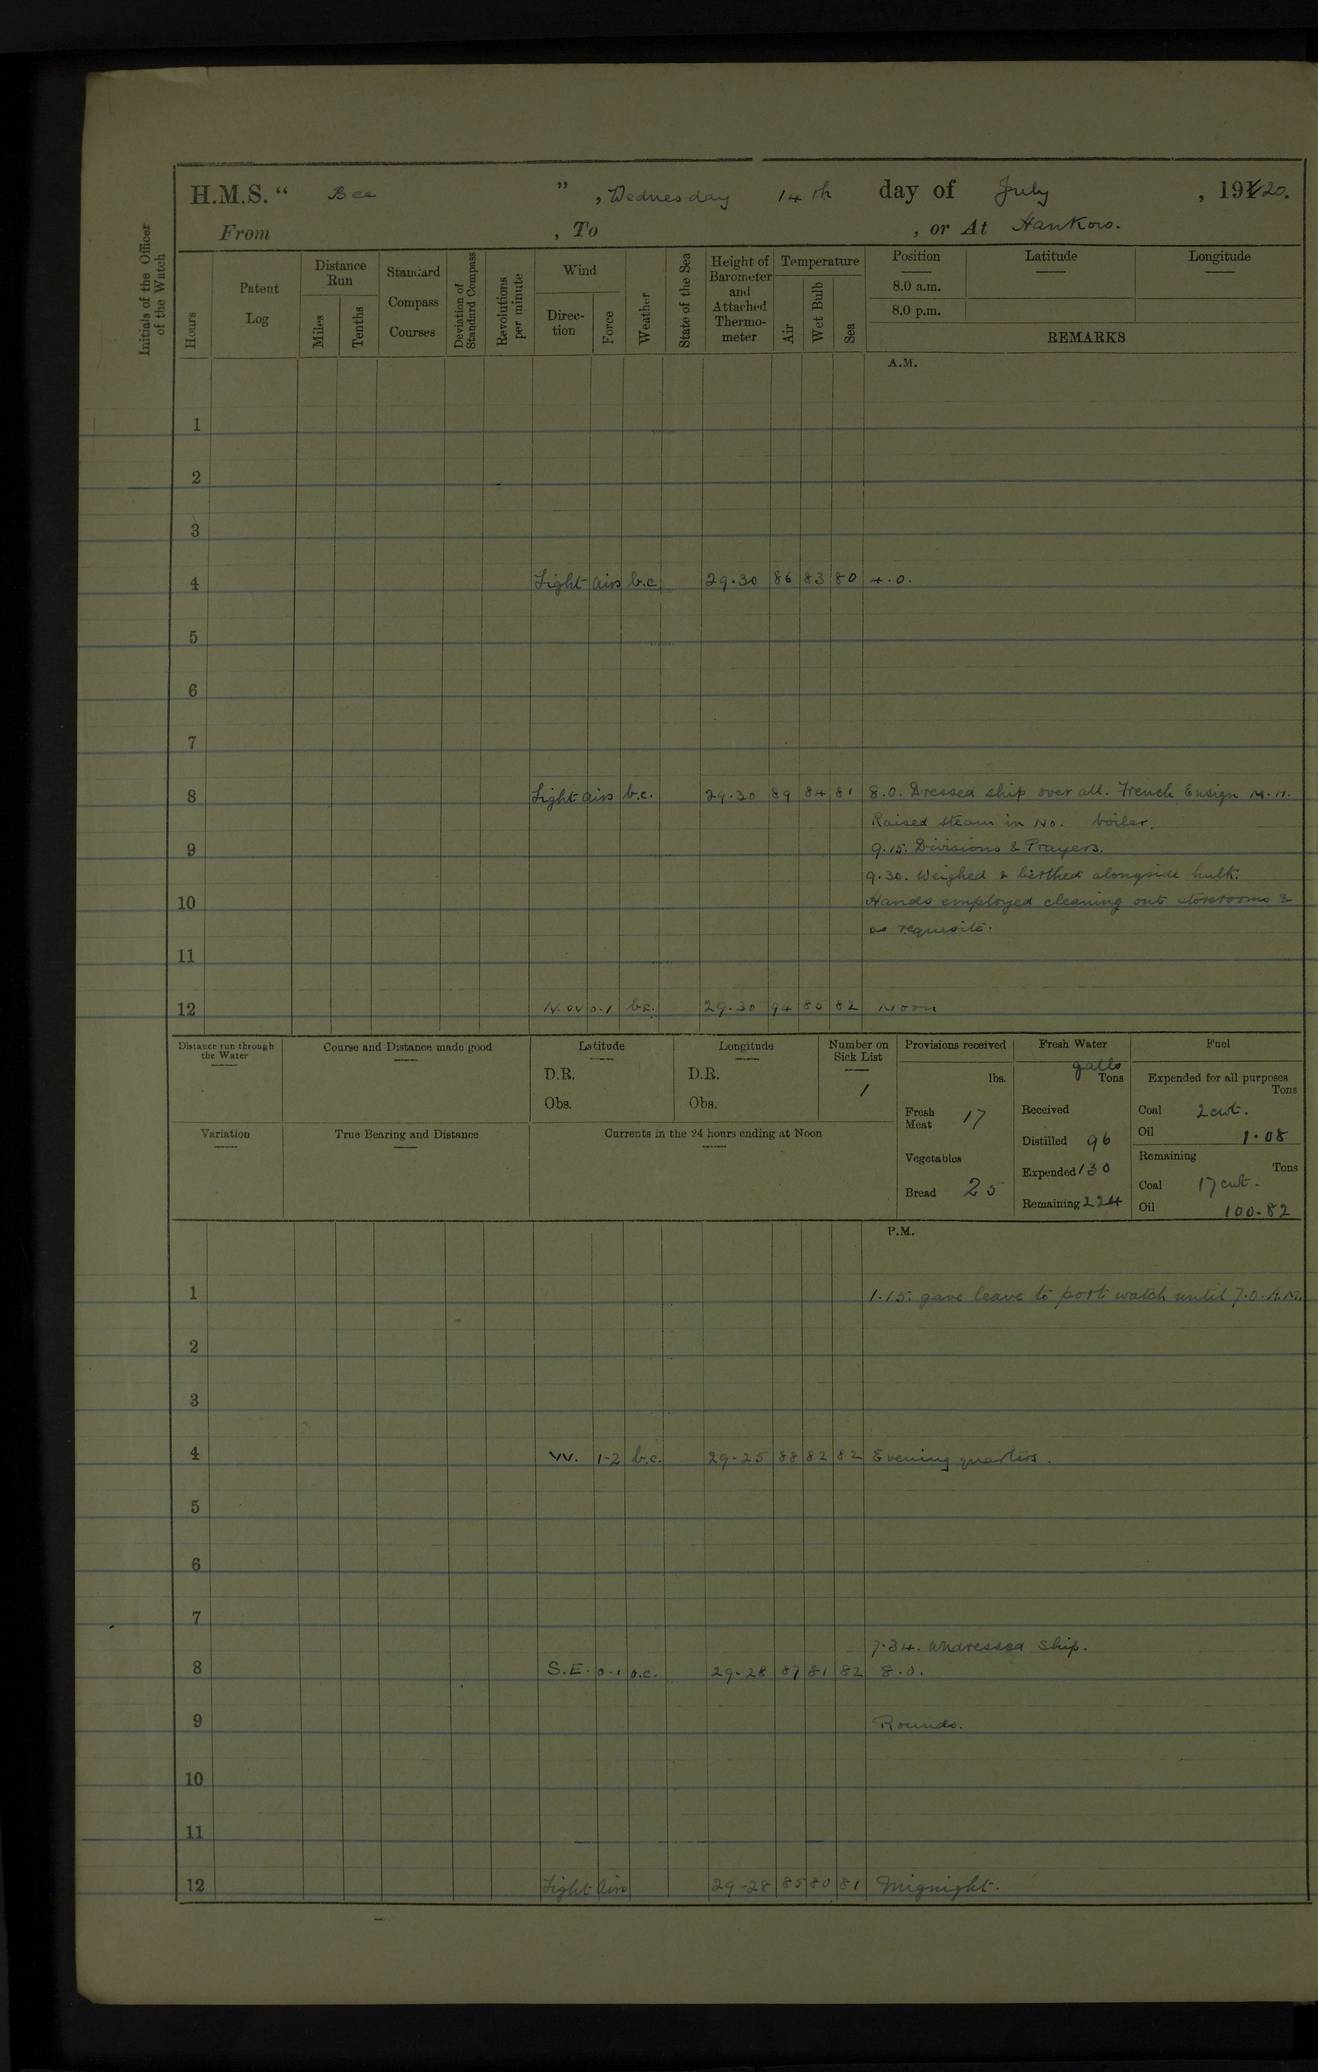 H.M.S. “ Bee ” , Wednesday 14th day of July , 1920.
From , To , or At Hankow.
Initials of the Officer of the Watch
Hours
Patent Log
Distance Run
Miles
Tenths
Standard Compass Courses
Deviation of Standard Compass
Revolutions per minute
Wind
Direction
Force
Weather
State of the Sea
Height of Barometer and Attached Thermometer
Temperature
Air
Wet Bulb
Sea
Position
Latitude
Longitude
8.0 a.m.
8.0 p.m.
REMARKS
A.M.
1
2
3
4 Light airs b.c. 29.30 86 83 80 4.0.
5
6
7
8 Light airs b.c. 29.30 89 84 81 8.0. Dressed ship over all. French Ensign M.H.
Raised steam in No. boiler.
9 9.15. Divisions & Prayers.
9.30. Weighed & berthed alongside hulk.
10 Hands employed cleaning out storerooms &
as requisite.
11
12 N.W 0.1 b.c. 29.30 94 82 Noon
Distance run through the Water
Course and Distance made good
Latitude
D.R.
Obs.
Longitude
D.R.
Obs.
Number on Sick List
1
Provisions received
lbs.
Fresh Meat 17
Vegetables
Bread 25
Fresh Water
galls
Tons
Received
Distilled 96
Expended 130
Remaining 224
Fuel
Expended for all purposes
Tons
Coal 2 cwt.
Oil 1.08
Remaining
Tons
Coal 17 cwt.
Oil 100.82
Variation
True Bearing and Distance
Currents in the 24 hours ending at Noon
P.M.
1 1.15. gave leave to port watch until 7.0. A.M.
2
3
4 W. 1-2 b.c. 29.25 88 82 82 Evening quarters.
5
6
7
7.34. Undressed ship.
8 S.E. 0-1 o.c. 29.28 87 81 82 8.0.
9 Rounds.
10
11
12 Light airs 29.28 85 80 81 Mignight.